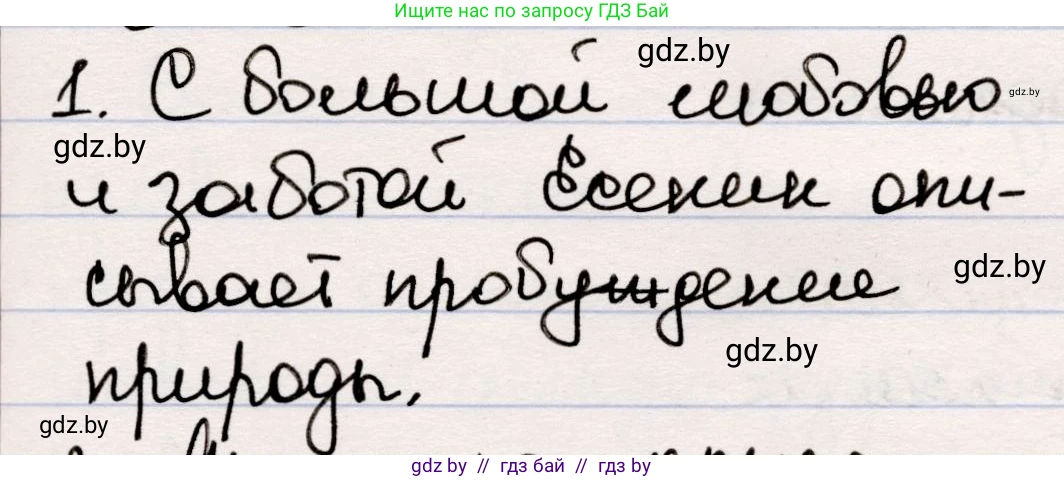 Ищите нас по запросу ГДЗ Бай
1. С большой любовью
gdz.by
gdz.by
gdz.by
и заботой Есенин опи-
сывает пробуждение
gdz.by
природы.
gdz.by
gdz.by
gdz by // гдз бай // гдз by